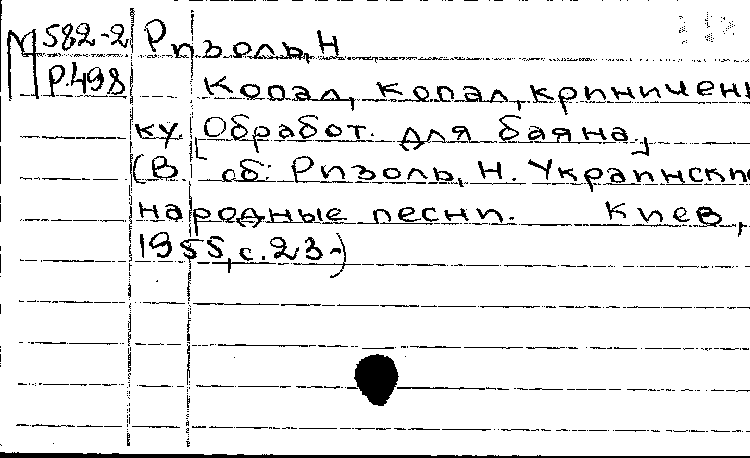 М 582-2 Ризоль, Н
Р.498 Копал, копал, криничень
ку. [Обработ. для баяна]
(В сб: Ризоль, Н. Украинские
народные песни. Киев,
1955, с. 23-)